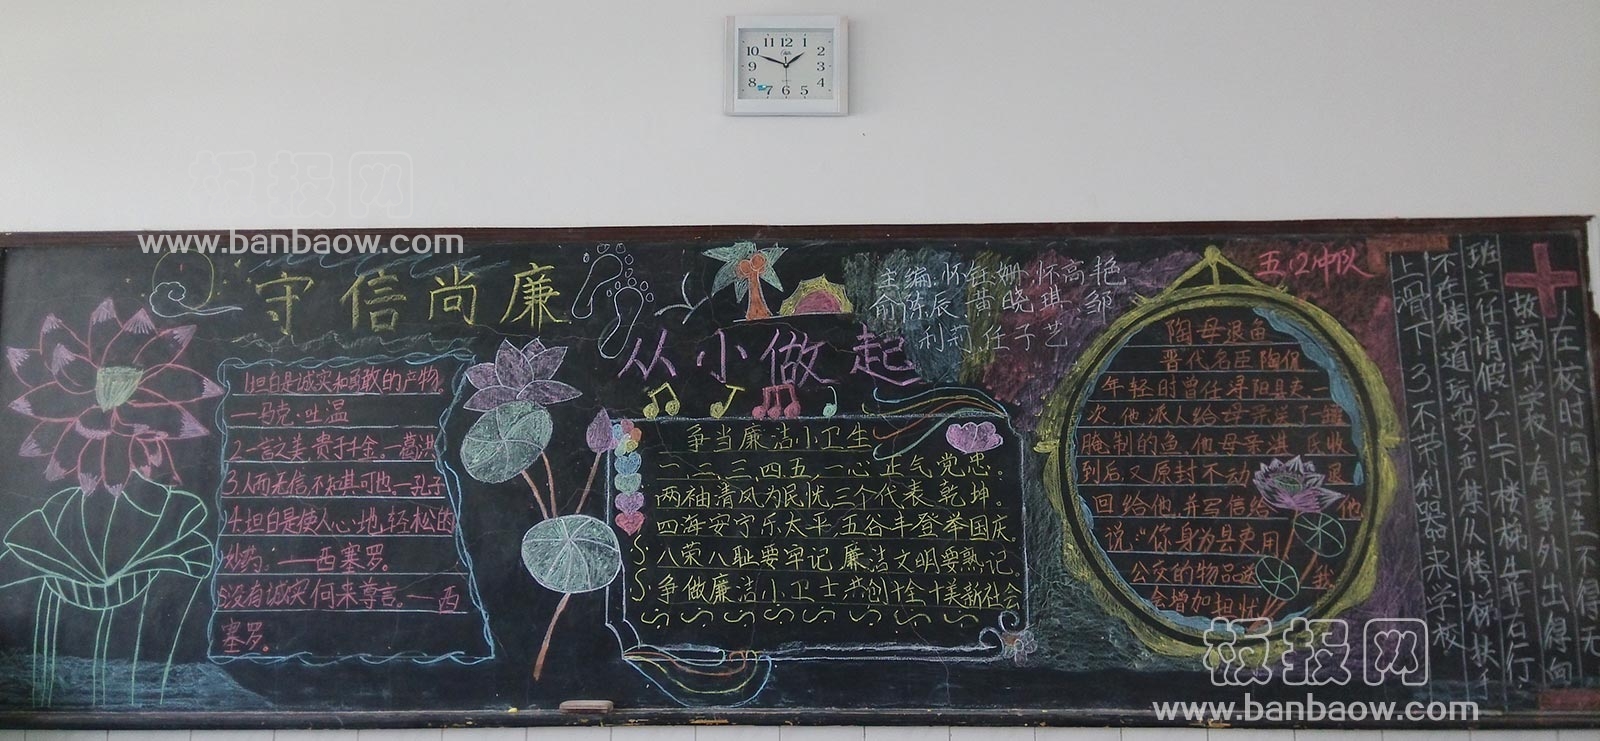 11 12 1
10 2
9 3
8 4
7 6 5
板报网
www.banbaow.com
守信尚廉
从小做起
主编:怀钰姗.怀高艳
俞陈辰.黄晓琪.邹
利莉.任子艺
五.(2)中队
1.坦白是诚实和勇敢的产物。
—马克·吐温
2.一言之美,贵于千金。—葛洪
3.人而无信,不知其可也。—孔子
4.坦白是使人心地轻松的
妙药。——西塞罗。
5.没有诚实何来尊言。—西
塞罗。
争当廉洁小卫生
一.二.三.四.五.一心正气党忠。
两袖清风为民忧,三个代表乾坤。
四海安宁乐太平,五谷丰登举国庆。
八荣八耻要牢记,廉洁文明要熟记。
争做廉洁小卫士共创十全十美新社会
陶母退鱼
晋代名臣陶侃
年轻时曾任浔阳县吏,一
次,他派人给母亲送了一罐
腌制的鱼.他母亲湛氏收
到后,又原封不动 退
回给他,并写信给 他
说:“你身为县吏用
公交的物品送 我
会增加担忧
1.在校时间学生不得无
故离开学校,有事外出,得向
班主任请假2.上下楼梯靠右行,
不在楼道玩耍,严禁从楼梯扶手
上滑下 3.不带利器来学校
板报网
www.banbaow.com